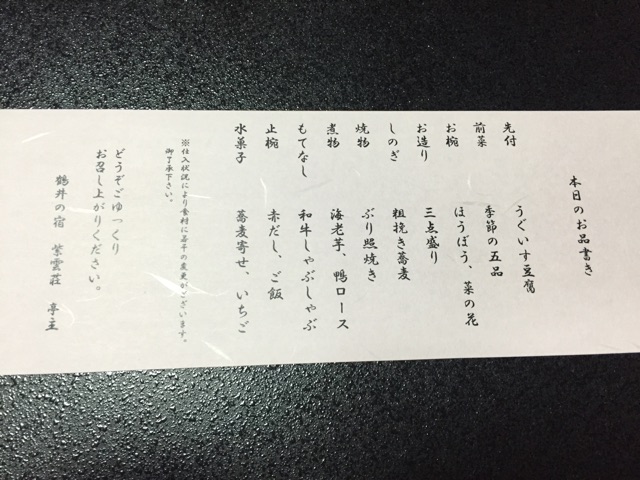 本日のお品書き
先付　うぐいす豆腐
前菜　季節の五品
お椀　ほうぼう、菜の花
お造り　三点盛り
しのぎ　粗挽き蕎麦
焼物　ぶり照焼き
煮物　海老芋、鴨ロース
もてなし　和牛しゃぶしゃぶ
止椀　赤だし、ご飯
水菓子　蕎麦寄せ、いちご
※仕入状況により食材に若干の変更がございます。
御了承下さい。
どうぞごゆっくり
お召し上がりください。
鶴井の宿　紫雲荘　亭主